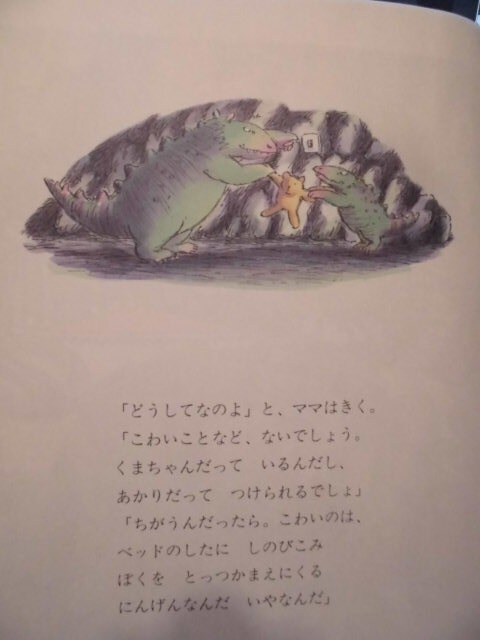 「どうしてなのよ」と、ママはきく。
「こわいことなど、ないでしょう。
くまちゃんだって　いるんだし、
あかりだって　つけられるでしょ」
「ちがうんだったら。こわいのは、
ベッドのしたに　しのびこみ
ぼくを　とっつかまえにくる
にんげんなんだ　いやなんだ」